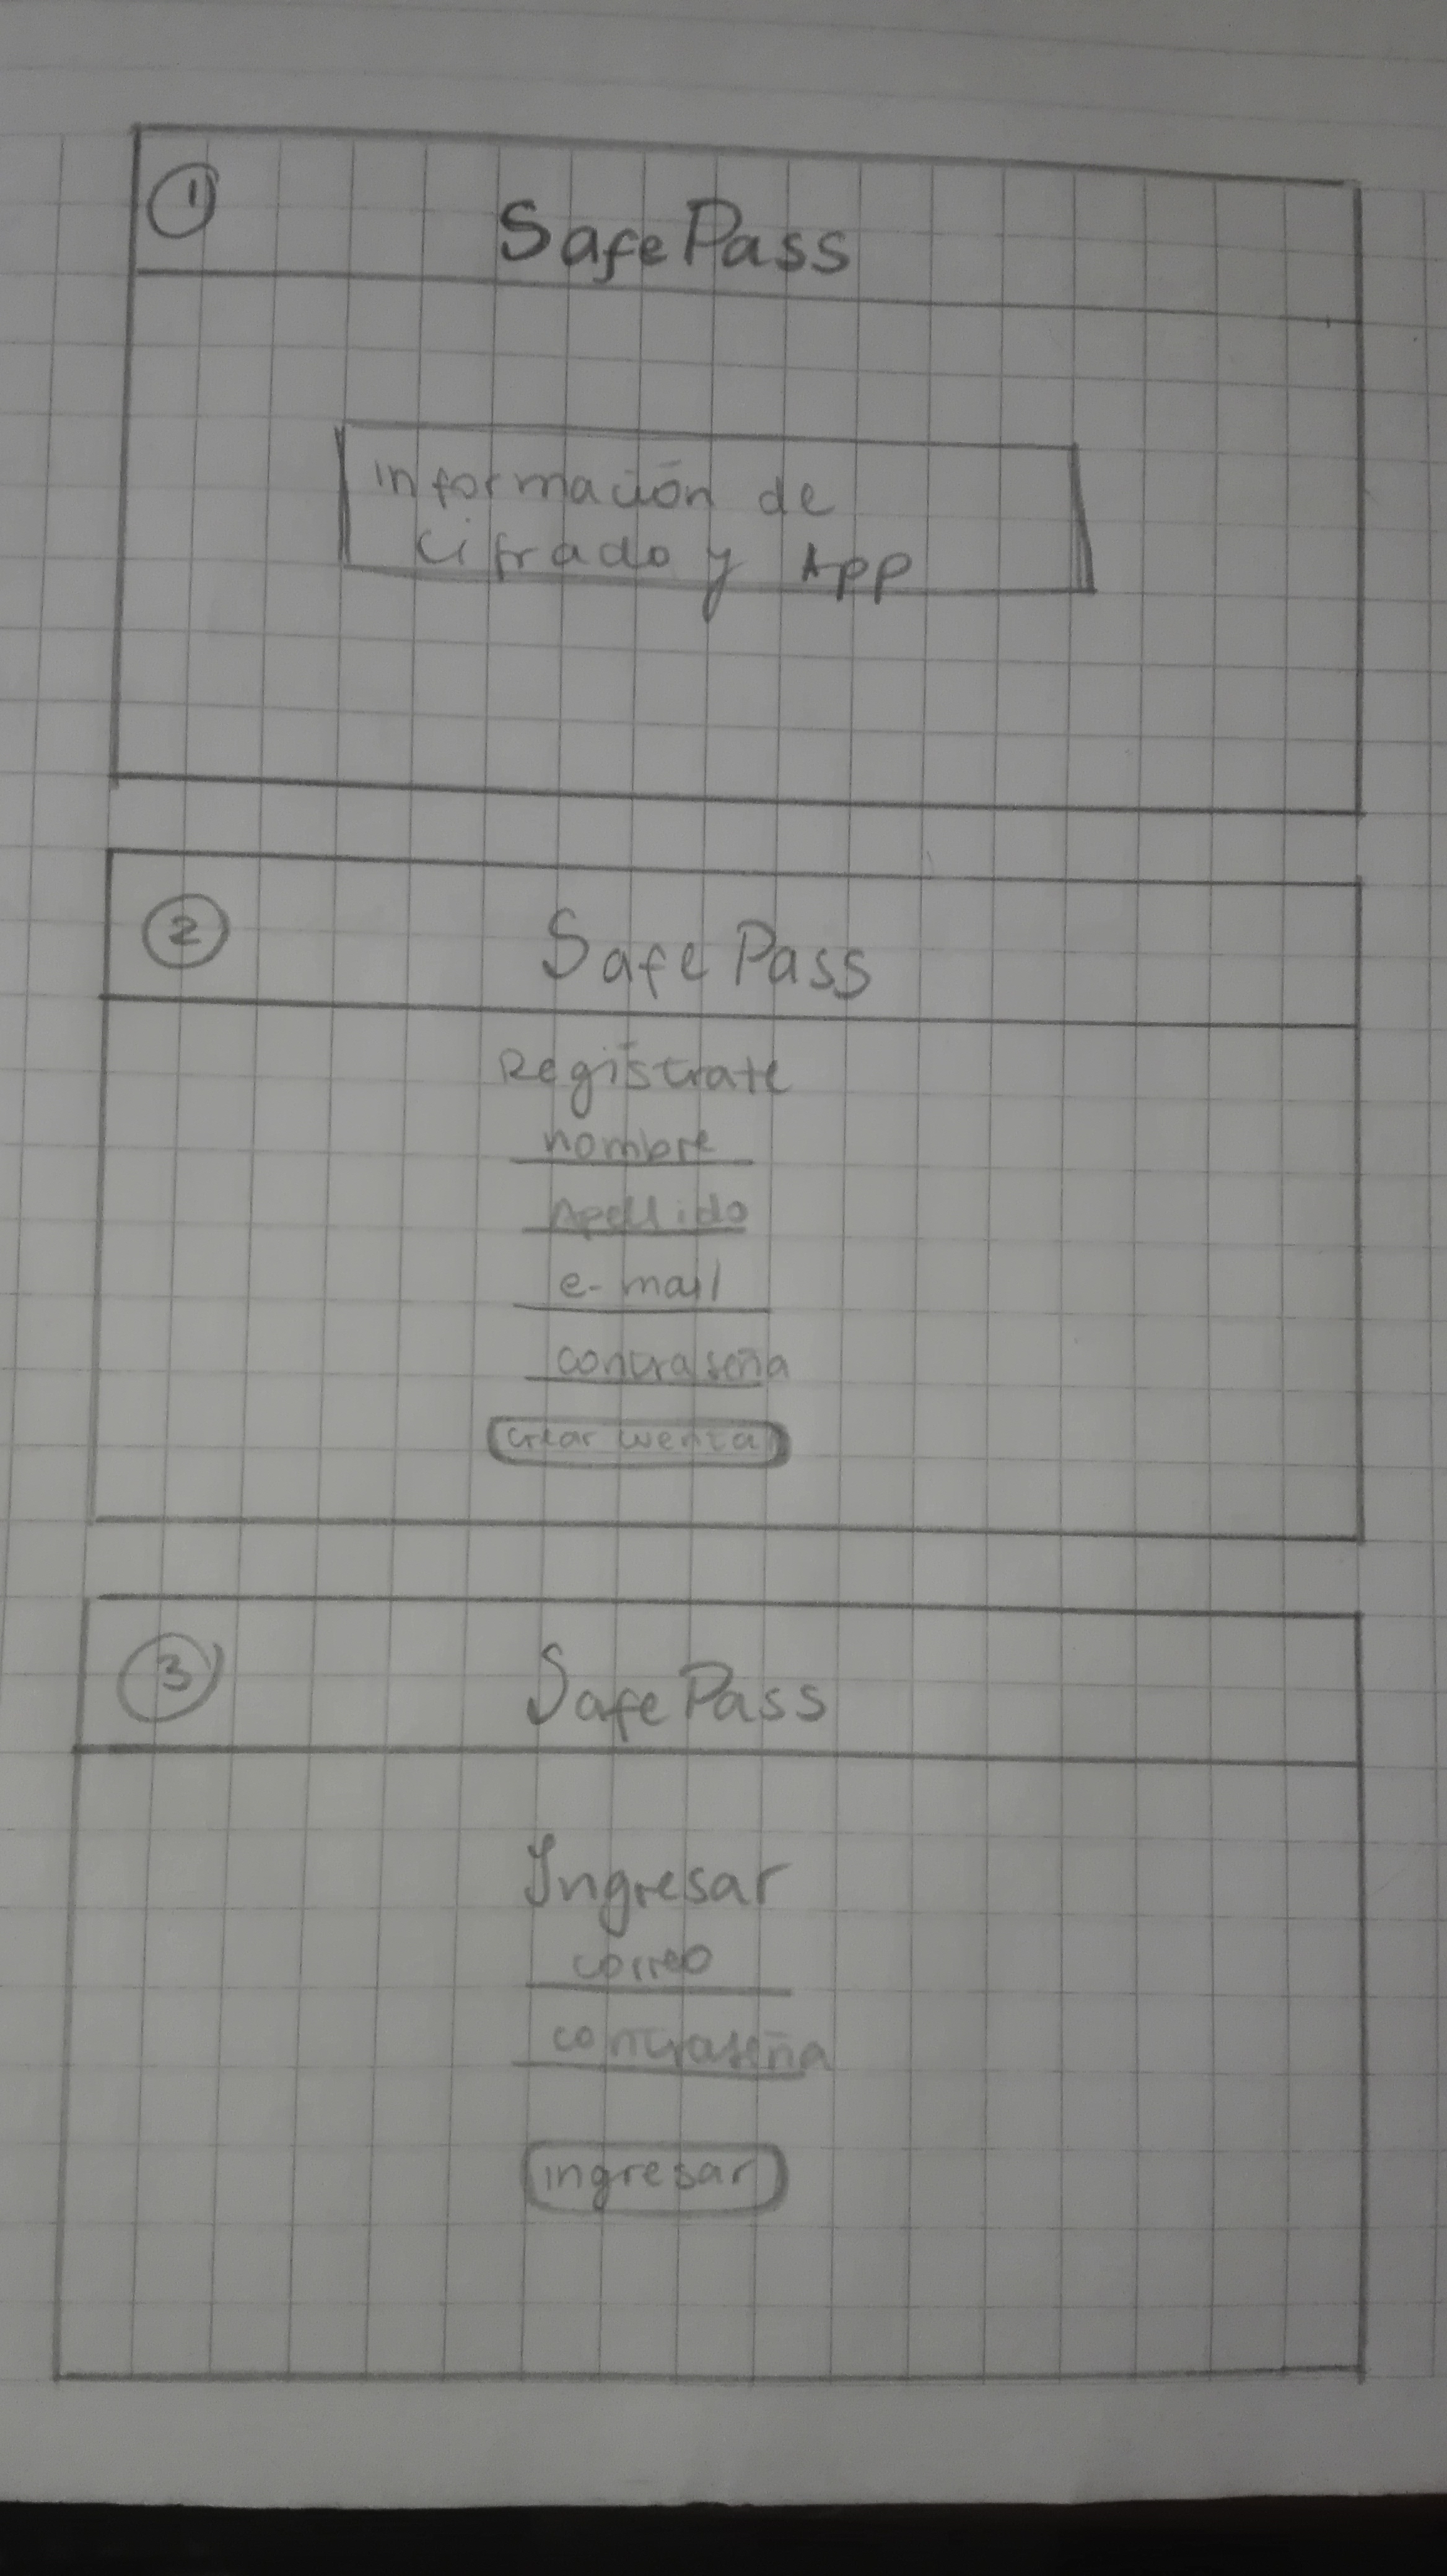 1
Safe Pass
información de
cifrado y App
2
Safe Pass
Regístrate
nombre
Apellido
e-mail
contraseña
crear cuenta
3
Safe Pass
Ingresar
correo
contraseña
ingresar